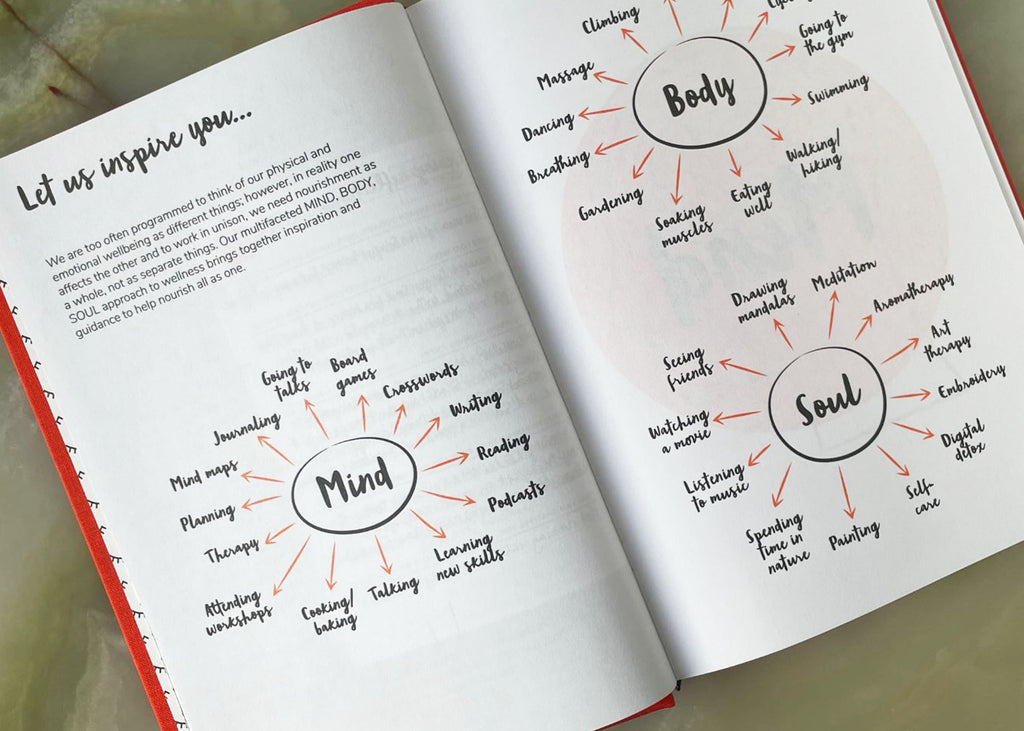 Let us inspire you...
We are too often programmed to think of our physical and
emotional wellbeing as different things; however, in reality one
affects the other and to work in unison, we need nourishment as
a whole, not as separate things. Our multifaceted MIND, BODY,
SOUL approach to wellness brings together inspiration and
guidance to help nourish all as one.
Mind
Going to
talks
Board
games
Crosswords
Writing
Reading
Podcasts
Learning
new skills
Talking
Cooking/
baking
Attending
workshops
Therapy
Planning
Mind maps
Journaling
Body
Climbing
Going to
the gym
Swimming
Walking/
hiking
Eating
well
Soaking
muscles
Gardening
Breathing
Dancing
Massage
Soul
Drawing
mandalas
Meditation
Aromatherapy
Art
therapy
Embroidery
Digital
detox
Self-
care
Painting
Spending
time in
nature
Listening
to music
Watching
a movie
Seeing
friends